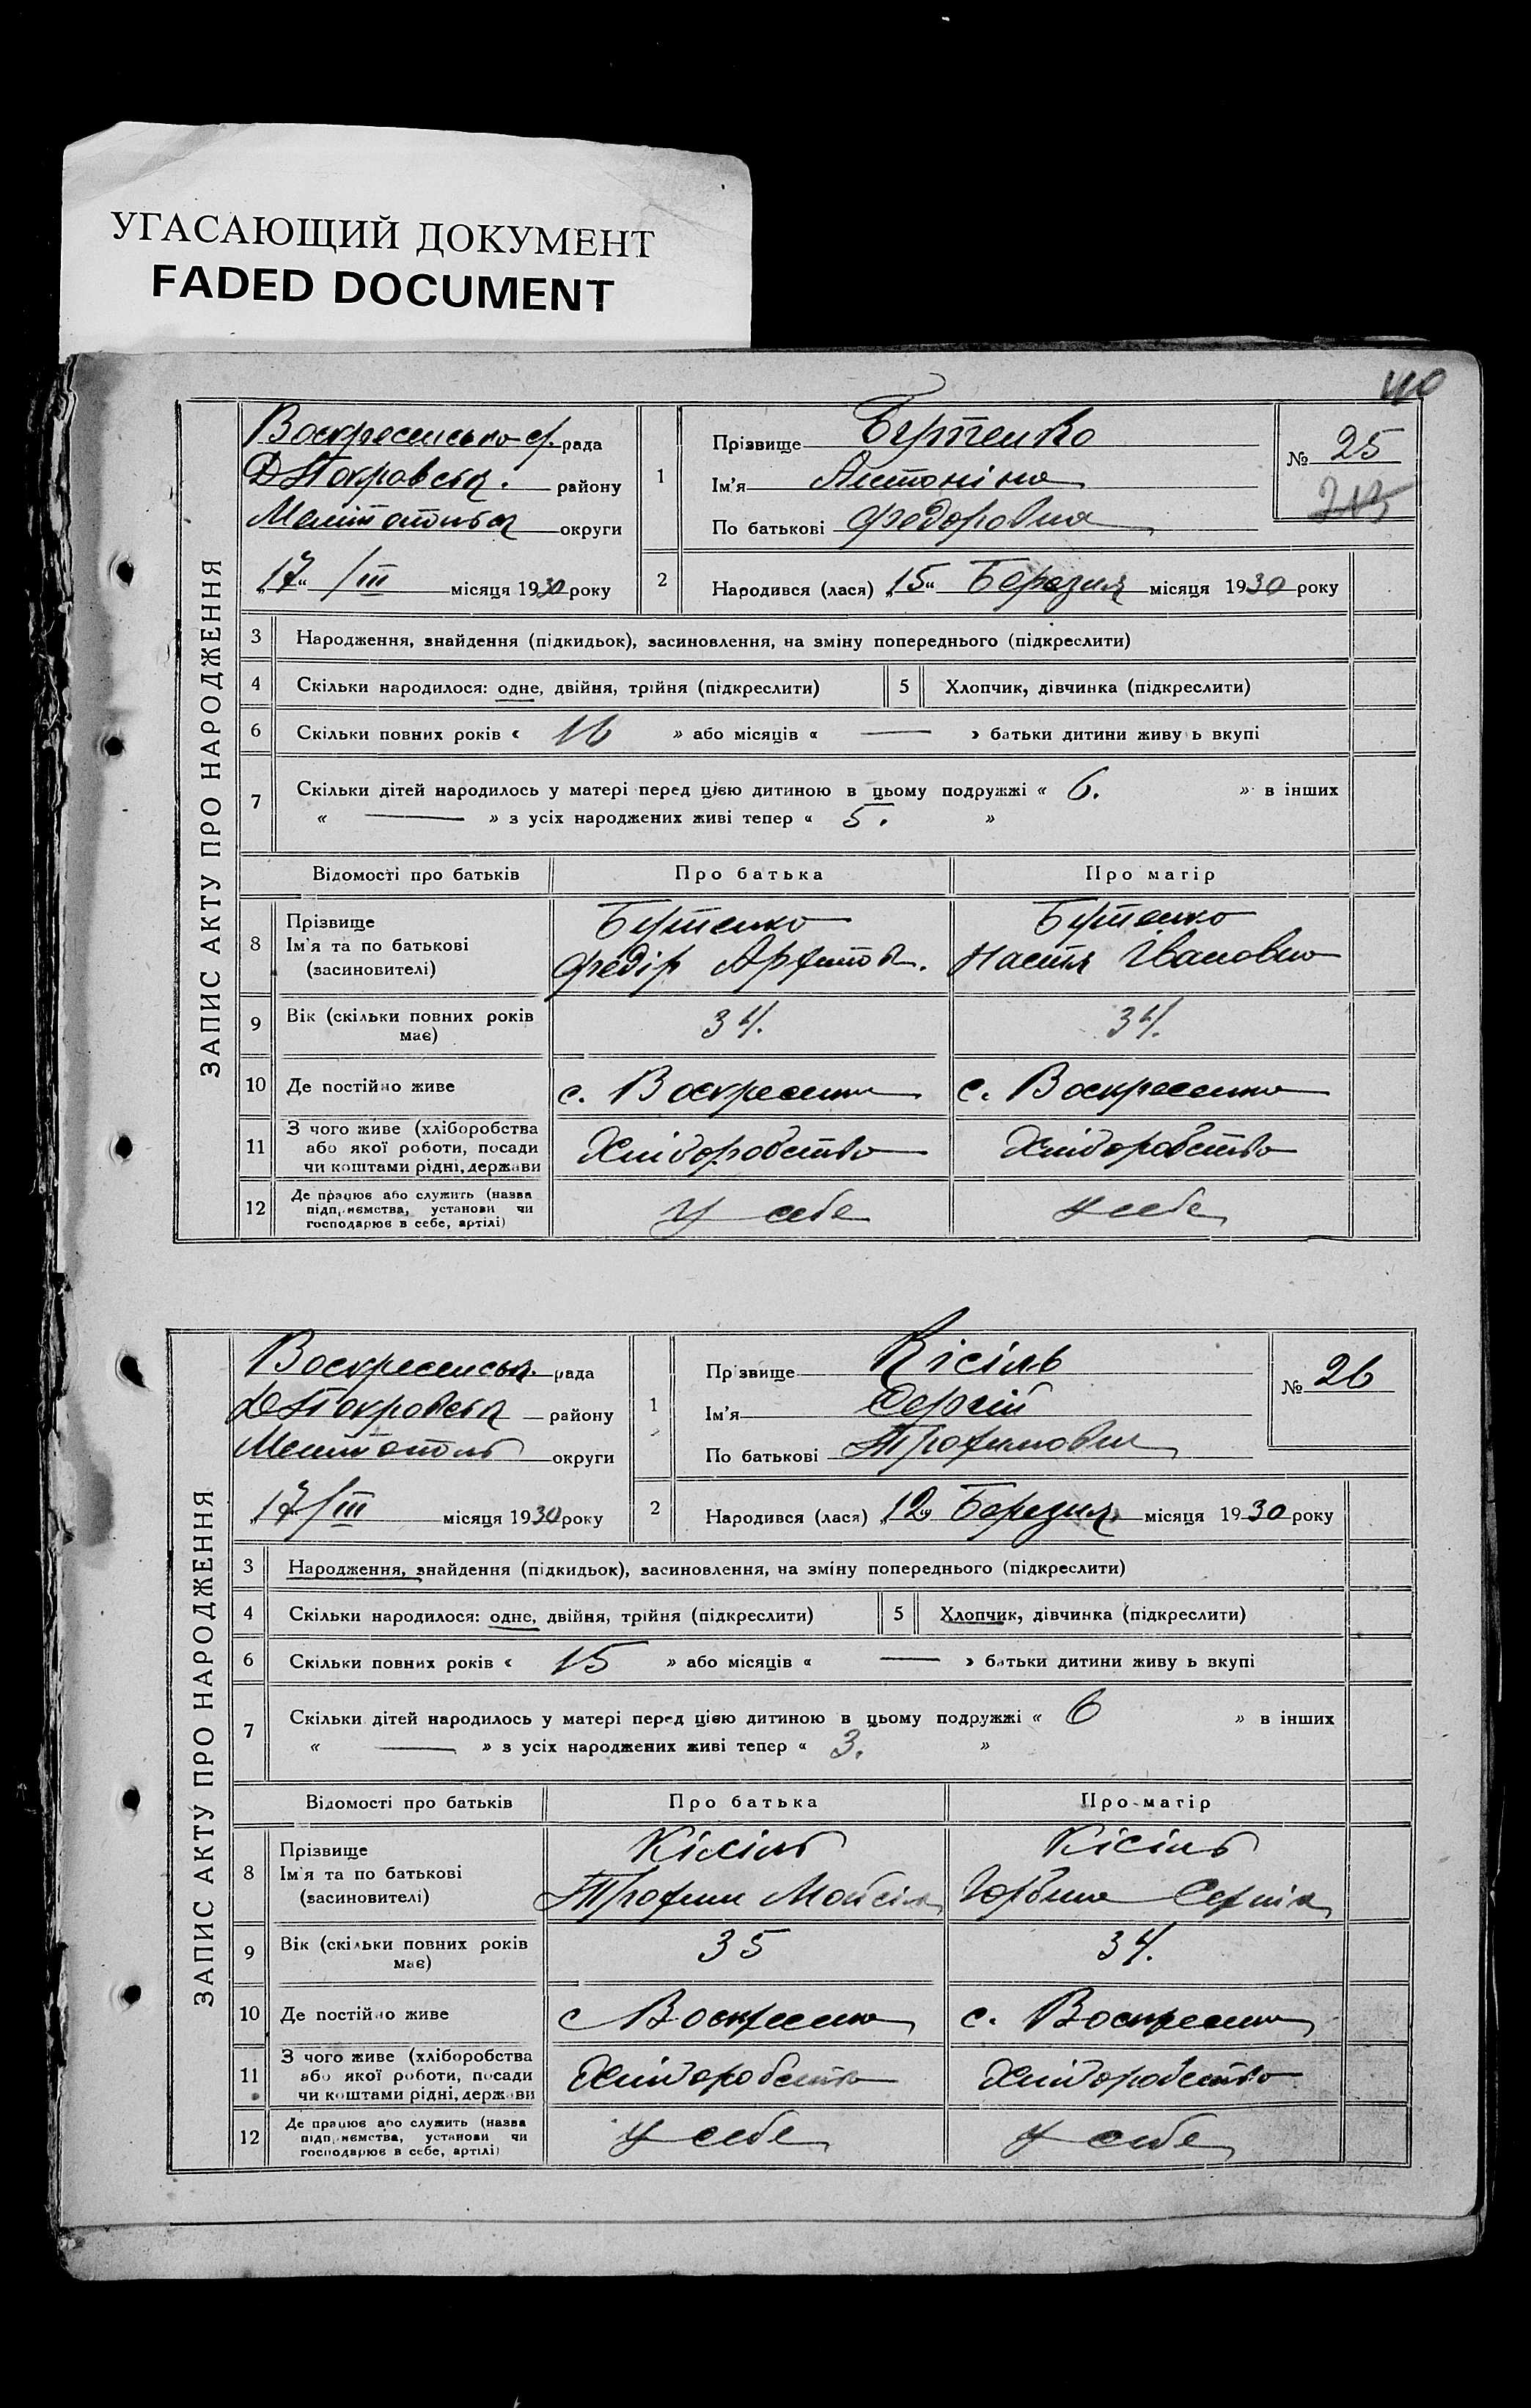 УГАСАЮЩИЙ ДОКУМЕНТ
FADED DOCUMENT
40
ЗАПИС АКТУ ПРО НАРОДЖЕННЯ
Воскресенсько с/. рада
В Токровськ. району
Мелітопольськ округи
„17“ /III місяця 1930 року
1
Прізвище Бутенко
Ім'я Антоніна
По батькові Федоровна
№ 25
2
Народився (лася) „15“ Березня місяця 1930 року
3 Народження, знайдення (підкидьок), засиновлення, на зміну попереднього (підкреслити)
4 Скільки народилося: одне, двійня, трійня (підкреслити) 5 Хлопчик, дівчинка (підкреслити)
6 Скільки повних років « 16 » або місяців « — » батьки дитини живу ь вкупі
7 Скільки дітей народилось у матері перед цією дитиною в цьому подружжі « 6. » в інших
« — » з усіх народжених живі тепер « 5. »
Відомості про батьків Про батька Про матір
8 Прізвище Бутенко Бутенко
Ім'я та по батькові Федір Настя Івановно
(засиновителі)
9 Вік (скільки повних років має) 34. 34.
10 Де постійно живе с. Воскресенка с. Воскресенка
11 З чого живе (хліборобства
або якої роботи, посади Хліборобство Хліборобство
чи коштами рідні, держави
12 Де працює або служить (назва
підприємства, установи чи у себе у себе
господарює в себе, артілі)
ЗАПИС АКТУ ПРО НАРОДЖЕННЯ
Воскресенськ. рада
В Токровськ району
Мелітополь округи
„17“ /III місяця 1930 року
1
Прізвище Кісіль
Ім'я Сергій
По батькові Трофимович
№ 26
2
Народився (лася) „12“ Березня місяця 1930 року
3 Народження, знайдення (підкидьок), засиновлення, на зміну попереднього (підкреслити)
4 Скільки народилося: одне, двійня, трійня (підкреслити) 5 Хлопчик, дівчинка (підкреслити)
6 Скільки повних років « 15 » або місяців « — » батьки дитини живу ь вкупі
7 Скільки дітей народилось у матері перед цією дитиною в цьому подружжі « 6 » в інших
« — » з усіх народжених живі тепер « 3. »
Відомості про батьків Про батька Про матір
8 Прізвище Кісіль Кісіль
Ім'я та по батькові Трофим Мойсій
(засиновителі)
9 Вік (скільки повних років має) 35 34.
10 Де постійно живе с Воскресенка с. Воскресенка
11 З чого живе (хліборобства
або якої роботи, посади Хліборобство Хліборобство
чи коштами рідні, держави
12 Де працює або служить (назва
підприємства, установи чи у себе у себе
господарює в себе, артілі)